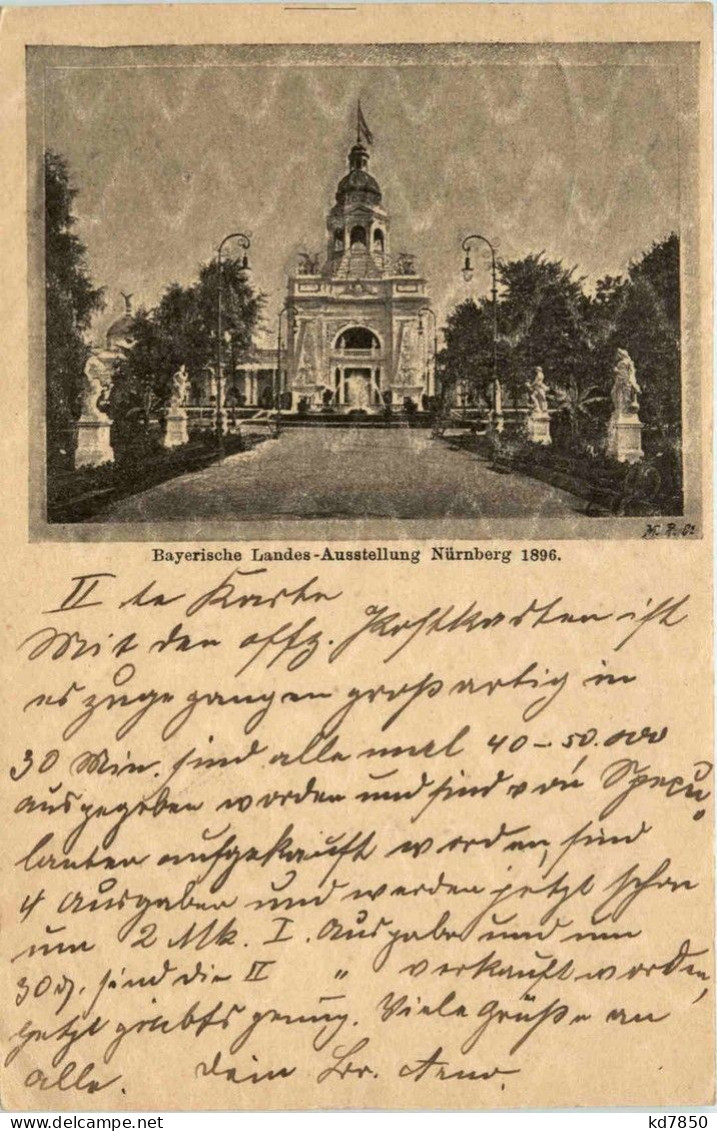 Bayerische Landes-Ausstellung Nürnberg 1896.
II te Karte
Mit den offz. Postkarten ist
es zugegangen großartig in
30 Min. sind allemal 40-50.000
ausgegeben worden und sind von Specu
lanten aufgekauft worden, sind
4 Ausgaben und werden jetzt schon
um 2 Mk. I. Ausgabe und um
30 d. sind die II " verkauft worden,
Jetzt giebts genug. Viele Grüße an
alle. Dein Br. Arno.
kd7850